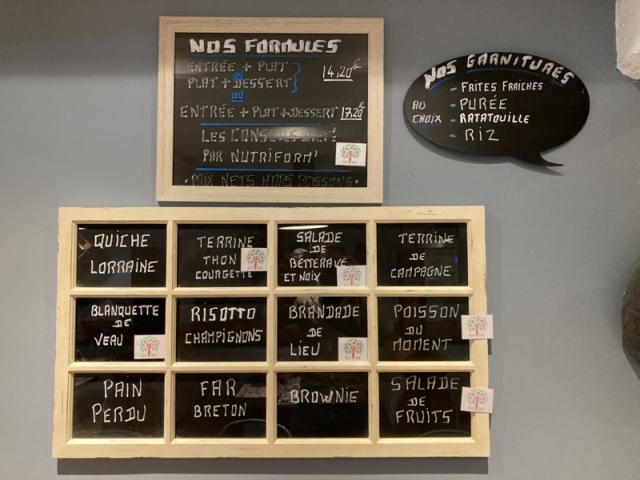 NOS FORMULES
ENTRÉE + PLAT
ou
PLAT + DESSERT
14,20€
ou
ENTRÉE + PLAT + DESSERT 17,20€
LES CONSEILS
PAR NUTRIFORM'
• PRIX NETS HORS BOISSONS •
NOS GARNITURES
AU CHOIX
- FRITES FRAÎCHES
- PURÉE
- RATATOUILLE
- RIZ
QUICHE
LORRAINE
TERRINE
THON
COURGETTE
SALADE
DE
BETTERAVE
ET NOIX
TERRINE
DE
CAMPAGNE
BLANQUETTE
DE
VEAU
RISOTTO
CHAMPIGNONS
BRANDADE
DE
LIEU
POISSON
DU
MOMENT
PAIN
PERDU
FAR
BRETON
BROWNIE
SALADE
DE
FRUITS